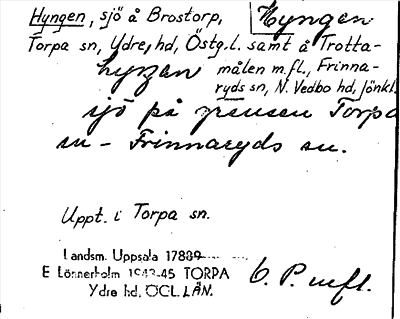 Hyngen, sjö å Brostorp, Hyngen
Torpa sn, Ydre hd, Östg.l. samt å Trotta-
hyŋŋen målen m.fl., Frinna-
ryds sn, N. Vedbo hd, Jönkl.
sjö på gränsen Torpa
sn – Frinnaryds sn.
Uppt. i Torpa sn.
Landsm. Uppsala 17889
E Lönnerholm 1943-45 TORPA
Ydre hd. ÖGL. LÄN.
6. P. mfl.